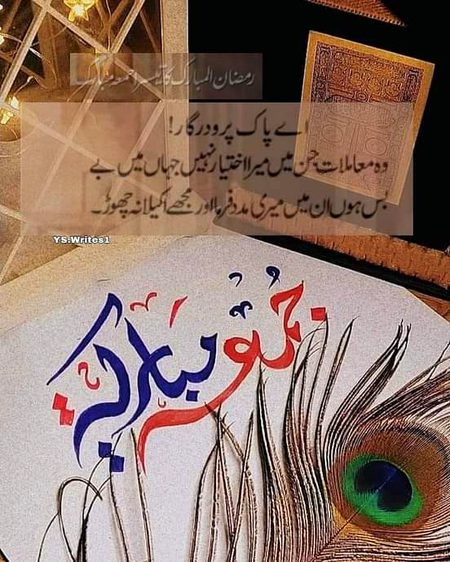 رمضان المبارک کا تیسرا جمعہ مبارک
اے پاک پرودرگار!
وہ معاملات جن میں میرا اختیار نہیں جہاں میں بے
بس ہوں ان میں میری مدد فرما اور مجھے اکیلا نہ چھوڑ۔
YS.Writes1
جمعة مباركة